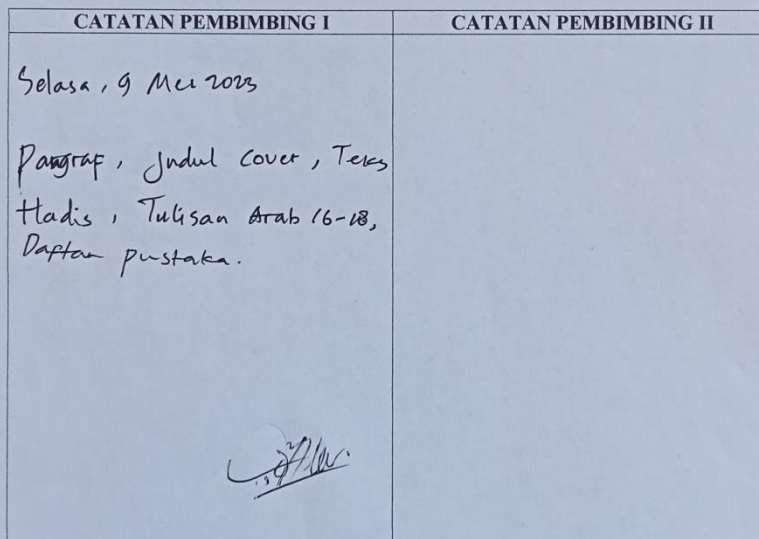 CATATAN PEMBIMBING I
CATATAN PEMBIMBING II
Selasa, 9 Mei 2023
Paragraf, Judul Cover, Teks
Hadis, Tulisan Arab 16-18,
Daftar pustaka.